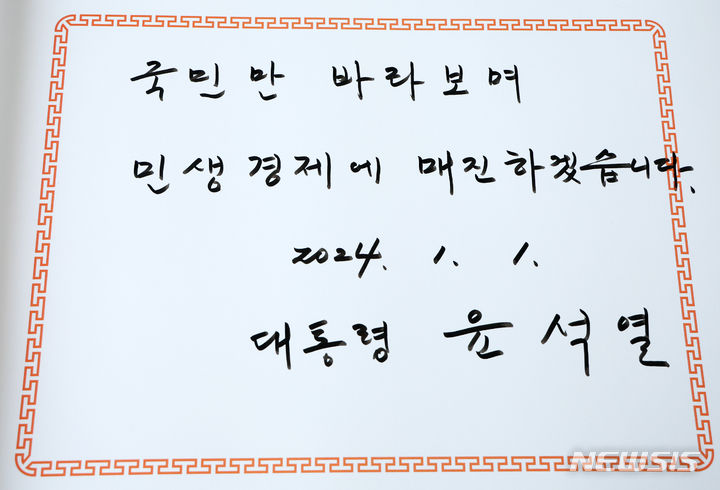 국민만 바라보며
민생경제에 매진하겠습니다.
2024. 1. 1.
대통령 윤석열
NEWSIS